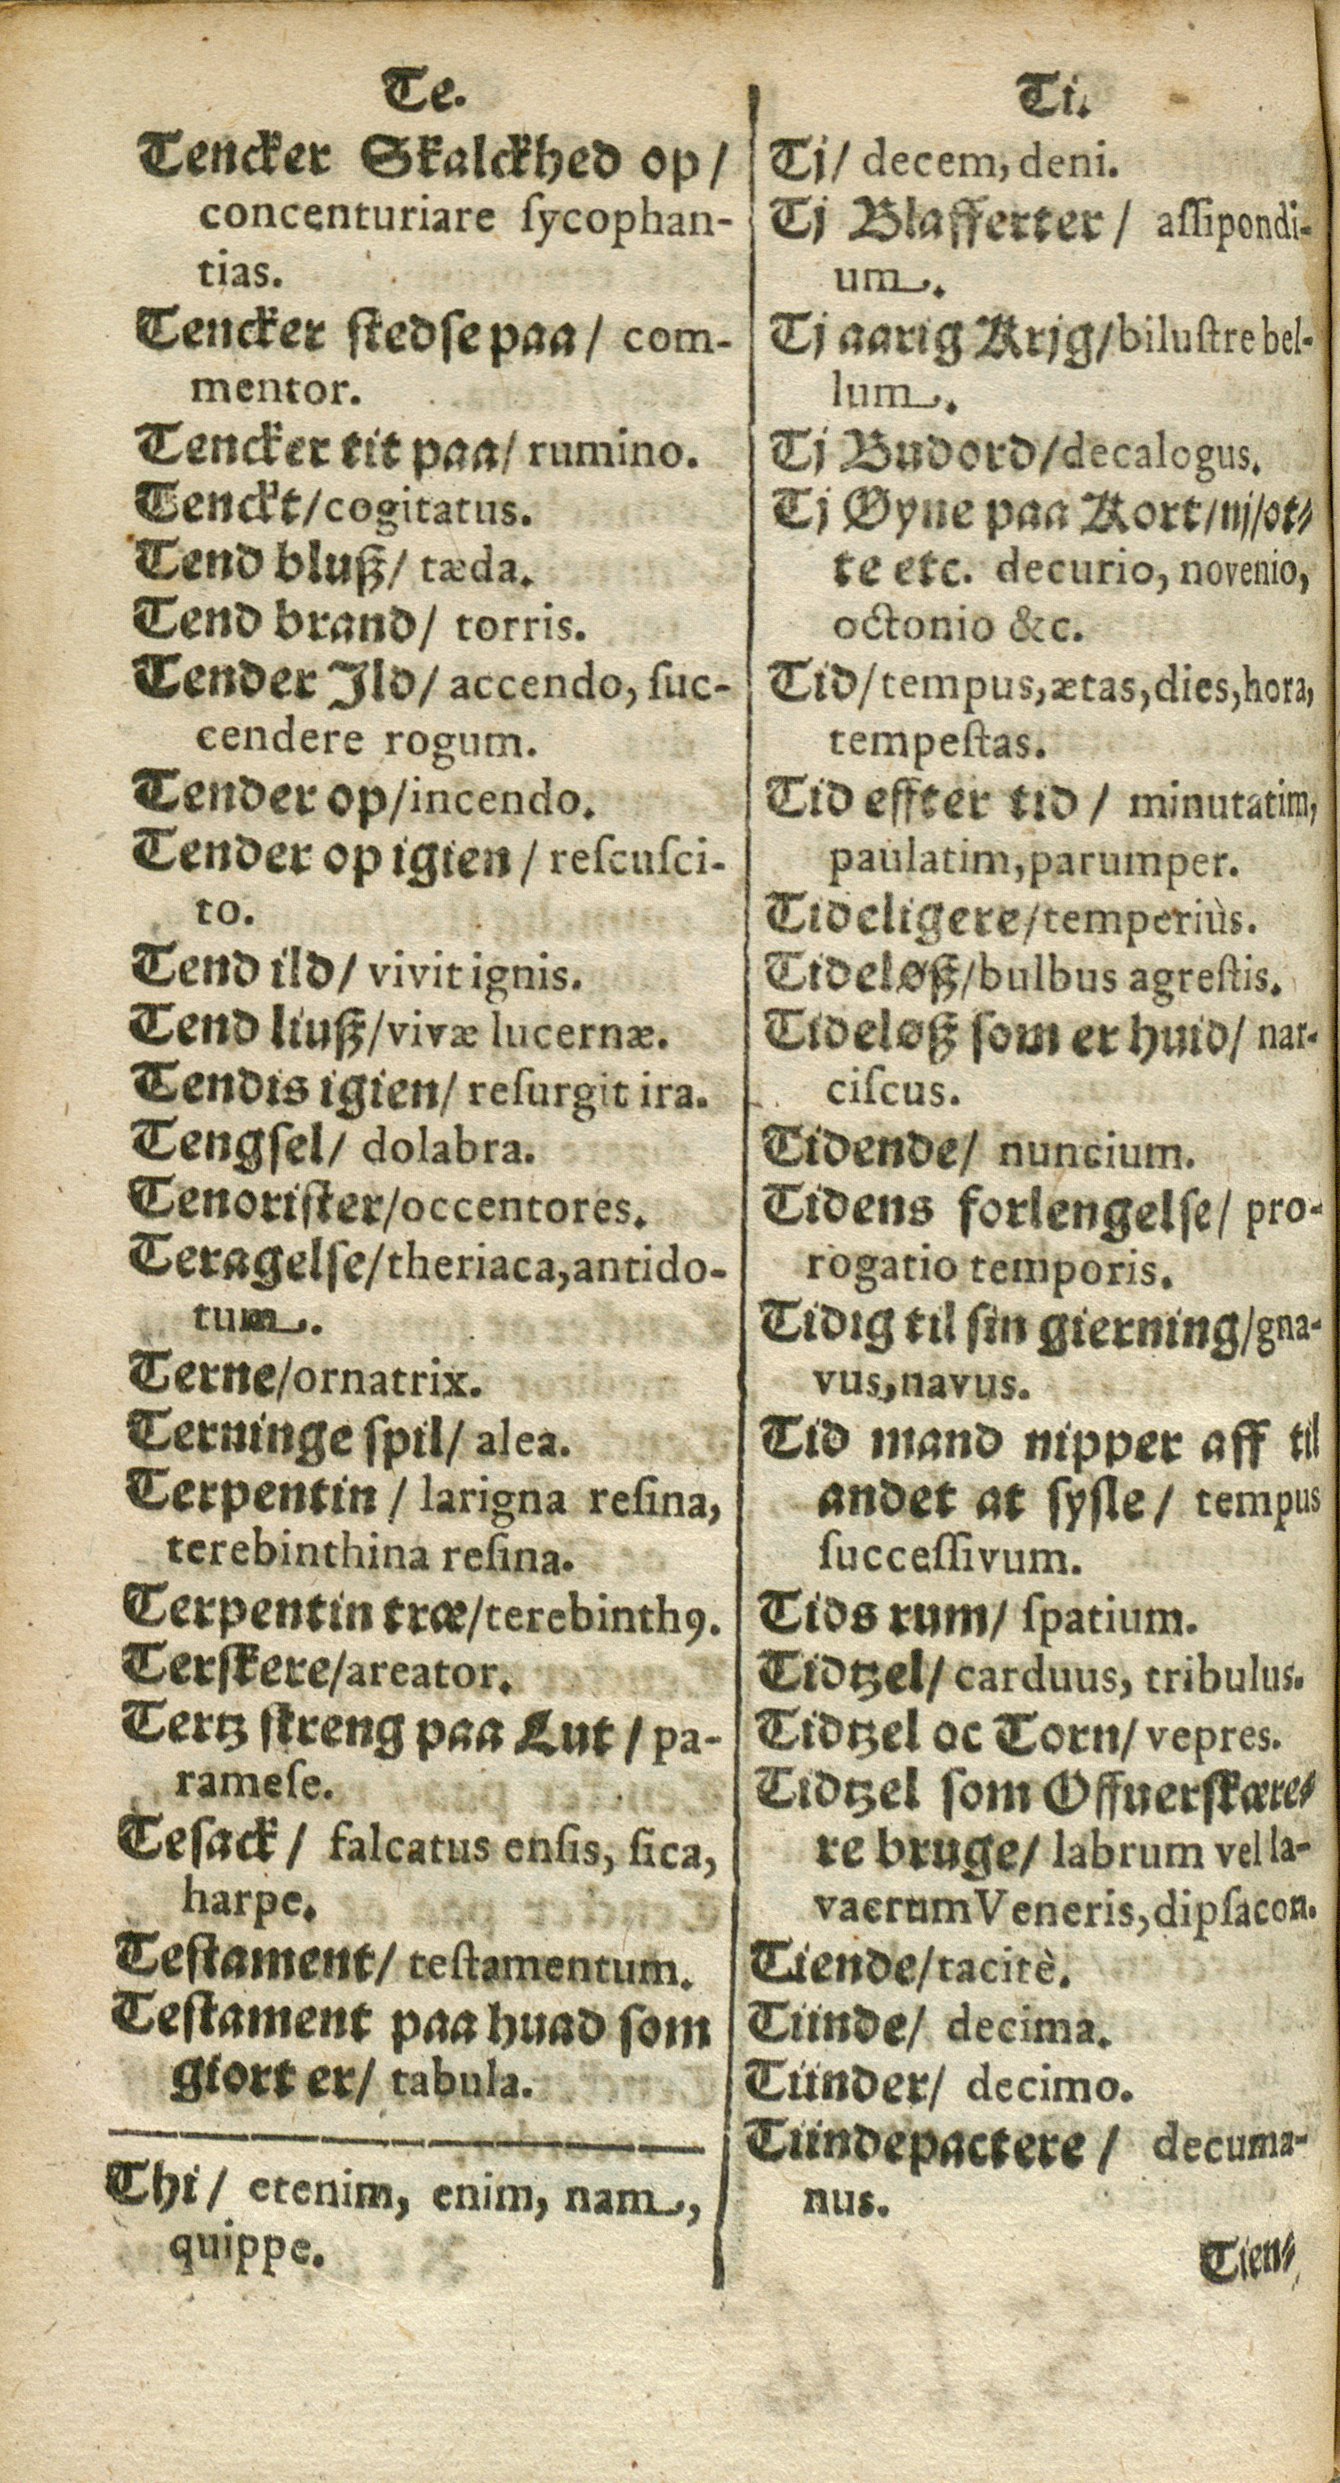 Te.
Tencker Skalckhed op/
concenturiare ſycophan-
tias.
Tencker ſtedſe paa/ com-
mentor.
Tencker tit paa/ rumino.
Tenckt/cogitatus.
Tend bluß/ tæda.
Tend brand/ torris.
Tender Ild/ accendo, ſuc-
cendere rogum.
Tender op/incendo.
Tender op igien/ reſcuſci-
to.
Tend ild/ vivit ignis.
Tend liuß/vivæ lucernæ.
Tendis igien/ reſurgit ira.
Tengſel/ dolabra.
Tenoriſter/occentores.
Teragelſe/theriaca,antido-
tum.
Terne/ornatrix.
Terninge ſpil/ alea.
Terpentin/ larigna reſina,
terebinthina reſina.
Terpentin træ/terebinthꝰ.
Terſkere/areator.
Tertz ſtreng paa Lut/ pa-
rameſe.
Teſack/ falcatus enſis, ſica,
harpe.
Teſtament/ teſtamentum.
Teſtament paa huad ſom
giort er/ tabula.
Thi/ etenim, enim, nam,
quippe.
Ti.
Tj/ decem, deni.
Tj Blafferter/ aſſipondi-
um.
Tj aarig Krjg/biluſtre bel-
lum.
Tj Budord/decalogus.
Tj Øyne paa Kort/nj/ot⸗
te etc. decurio, novenio,
octonio &c.
Tid/tempus,ætas,dies,hora,
tempeſtas.
Tid effter tid/ minutatim,
paulatim,parumper.
Tideligere/temperiùs.
Tideløß/bulbus agreſtis.
Tideløß ſom er huid/ nar-
ciſcus.
Tidende/ nuncium.
Tidens forlengelſe/ pro-
rogatio temporis.
Tidig til ſin gierning/gna-
vus,navus.
Tid mand nipper aff til
andet at ſyſle/ tempus
ſucceſſivum.
Tids rum/ ſpatium.
Tidtzel/ carduus, tribulus.
Tidtzel oc Torn/ vepres.
Tidtzel ſom Offuerſkære⸗
re bruge/ labrum vel la-
vacrum Veneris,dipſacon.
Tiende/tacitè.
Tiinde/ decima.
Tiinder/ decimo.
Tiindepactere/ decuma-
nus.
Tien⸗